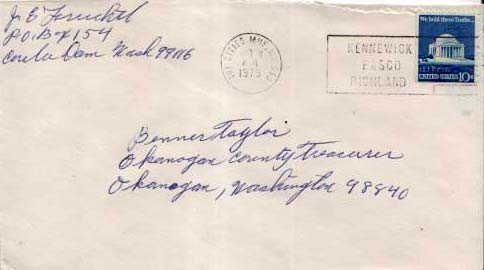 J. E.
P.O. Box 154
Coulee Dam Wash 99116
TRI CITIES
1975
KENNEWICK
PASCO
RICHLAND
We hold these Truths...
UNITED STATES 10c
Benner Taylor
Okanogan County Treasurer
Okanogan, Washington 98840